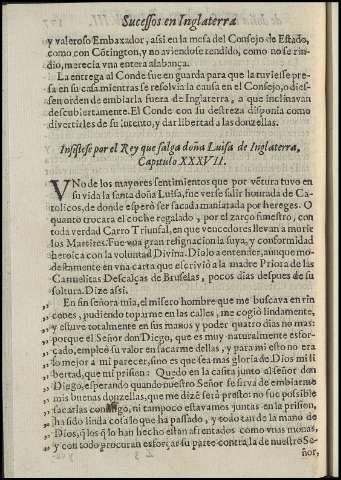 Sucessos en Inglaterra
y valeroso Embaxador, assi en la mesa del Consejo de Estado,
como con Cõtington, y no aviendose rendido, como no se rin-
dio, merecia vna entera alabança.
La entrega al Conde fue en guarda para que la tuviesse pre-
sa en su casa mientras se resolvia la causa en el Consejo, o dies-
sen orden de embiarla fuera de Inglaterra, a que inclinavan
descubiertamente. El Conde con su destreza disponia como
divertirles de su intento, y dar libertad a las donzellas.
Insistese por el Rey que salga doña Luisa de Inglaterra,
Capitulo XXXVII.
VNo de los mayores sentimientos que por vẽtura tuvo en
su vida la santa doña Luisa, fue verse salir honrada de Ca-
tolicos, de donde esperò ser sacada maniatada por hereges. O
quanto trocara el coche regalado, por el zarço funestro, con
toda verdad Carro Triunfal, en que vencedores llevan a morir
los Martires. Fue vna gran resignacion la suya, y conformidad
heroica con la voluntad Divina. Diolo a entender, aunque mo-
destamente en vna carta que escrivió a la madre Priora de las
Carmelitas Descalças de Bruselas, pocos dias despues de su
soltura. Dize assi.
,, En fin señora mia, el misero hombre que me buscava en rin
,, cones, pudiendo toparme en las calles, me cogio lindamente,
,, y estuve totalmente en sus manos y poder quatro dias no mas:
,, porque el Señor don Diego, que es muy naturalmente esfor-
,, cado, empleó su valor en sacarme dellas, y para mi esto no era
,, lo mejor a mi parecer, sino es que sea mas gloria de Dios mi li
,, bertad, que mi prision: Quedo en la casita junto al señor don
,, Diego, esperando quando nuestro Señor se sirva de embiarme
,, mis buenas donzellas, que me dizẽ será presto: no fue possible
,, sacarlas conmigo, ni tampoco estavamos juntas en la prision,
,, ha sido linda cosa lo que ha passado, y todo tan de la mano de
,, Dios, q̃ los q̃ lo han hecho an afrentados como vnas monas,
,, y con todo procuran esforçar su parte contra la de nuestro Se-
ñor,